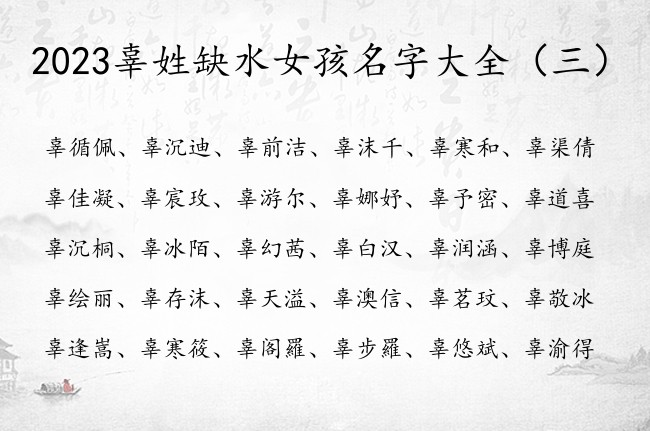 2023辜姓缺水女孩名字大全（三）
辜循佩、辜沉迪、辜前洁、辜沫千、辜寒和、辜渠倩
辜佳凝、辜宸玫、辜游尔、辜娜妤、辜予密、辜道喜
辜沉桐、辜冰陌、辜幻茜、辜白汉、辜润涵、辜博庭
辜绘丽、辜存沫、辜天溢、辜澳信、辜茗玟、辜敬冰
辜逢嵩、辜寒筱、辜阁羅、辜步羅、辜悠斌、辜渝得